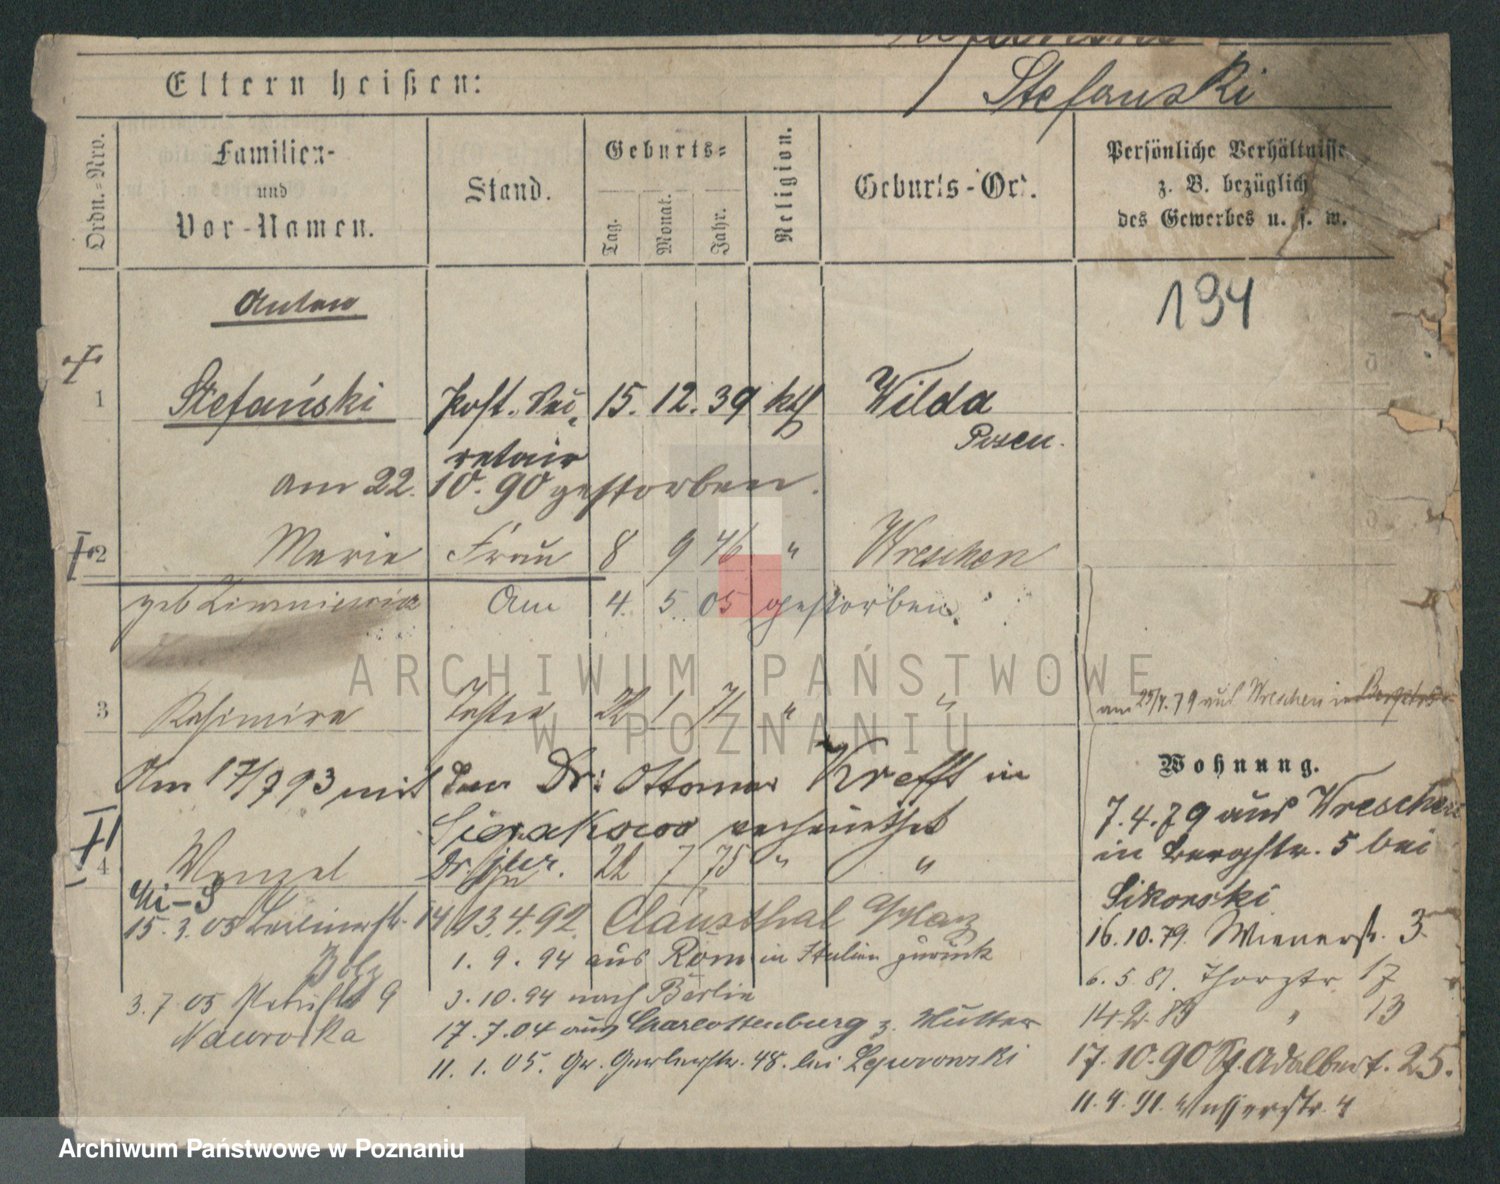 Stefanski
Eltern heißen:
Ordn.=Nro.
Familien-
und
Vor-Namen.
Stand.
Geburts=
Tag.
Monat.
Jahr.
Religion.
Geburts-Ort.
Persönliche Verhältnisse
z. B. bezüglich
des Gewerbes u. s. w.
194
Anton
1 Stefański Post. Sec. 15. 12. 39 kth Wilda
retair Posen.
am 22. 10. 90 gestorben.
2 Marie Frau 8 9 46 " Wreschen
geb am 4. 5. 05 gestorben.
3 Kasimira Tochter 22 1 71 " "
am 25/4. 79 aus Wreschen in
Am 17/7 93 mit dem Dr: Ottomar Krefft in
Sierakowo verheirathet
4 Wenzel 22 7 75 " "
15. 3. 05 Berlinerstr. 14 13. 4. 92. Clausthal
1. 9. 94 aus Rom in Italien zurück
3. 7. 05 9 3. 10. 94 nach Berlin
Nawrocka 17. 7. 04 aus Charlottenburg z. Mutter
11. 1. 05. Gr. Gerberstr. 48. bei
Wohnung.
7. 4. 79 aus Wreschen
in Bergstr. 5 bei
Sikorski
16. 10. 79. Wienerstr. 3.
6. 5. 81. Thorstr 17
14 2. 89 " 13
17. 10. 90 St. Adalbert. 25.
11. 4. 91. Wasserstr. 4
ARCHIWUM PAŃSTWOWE
W POZNANIU
Archiwum Państwowe w Poznaniu